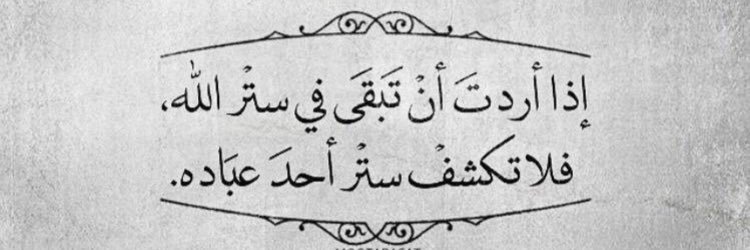 إذا أردتَ أنْ تَبقَى في ستْر الله،
فلا تكشفْ ستْر أحدَ عبَاده.